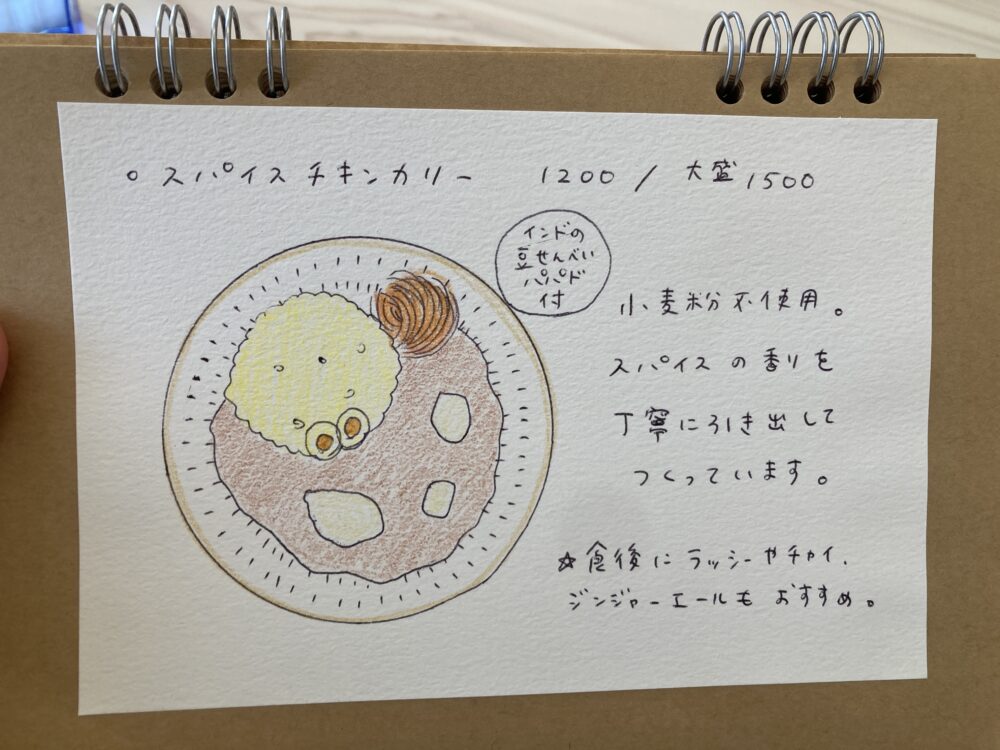 ○ スパイスチキンカリー 1200 / 大盛 1500
インドの
豆せんべい
パパド
付
小麦粉不使用。
スパイスの香りを
丁寧に引き出して
つくっています。
☆食後にラッシーやチャイ、
ジンジャーエールもおすすめ。